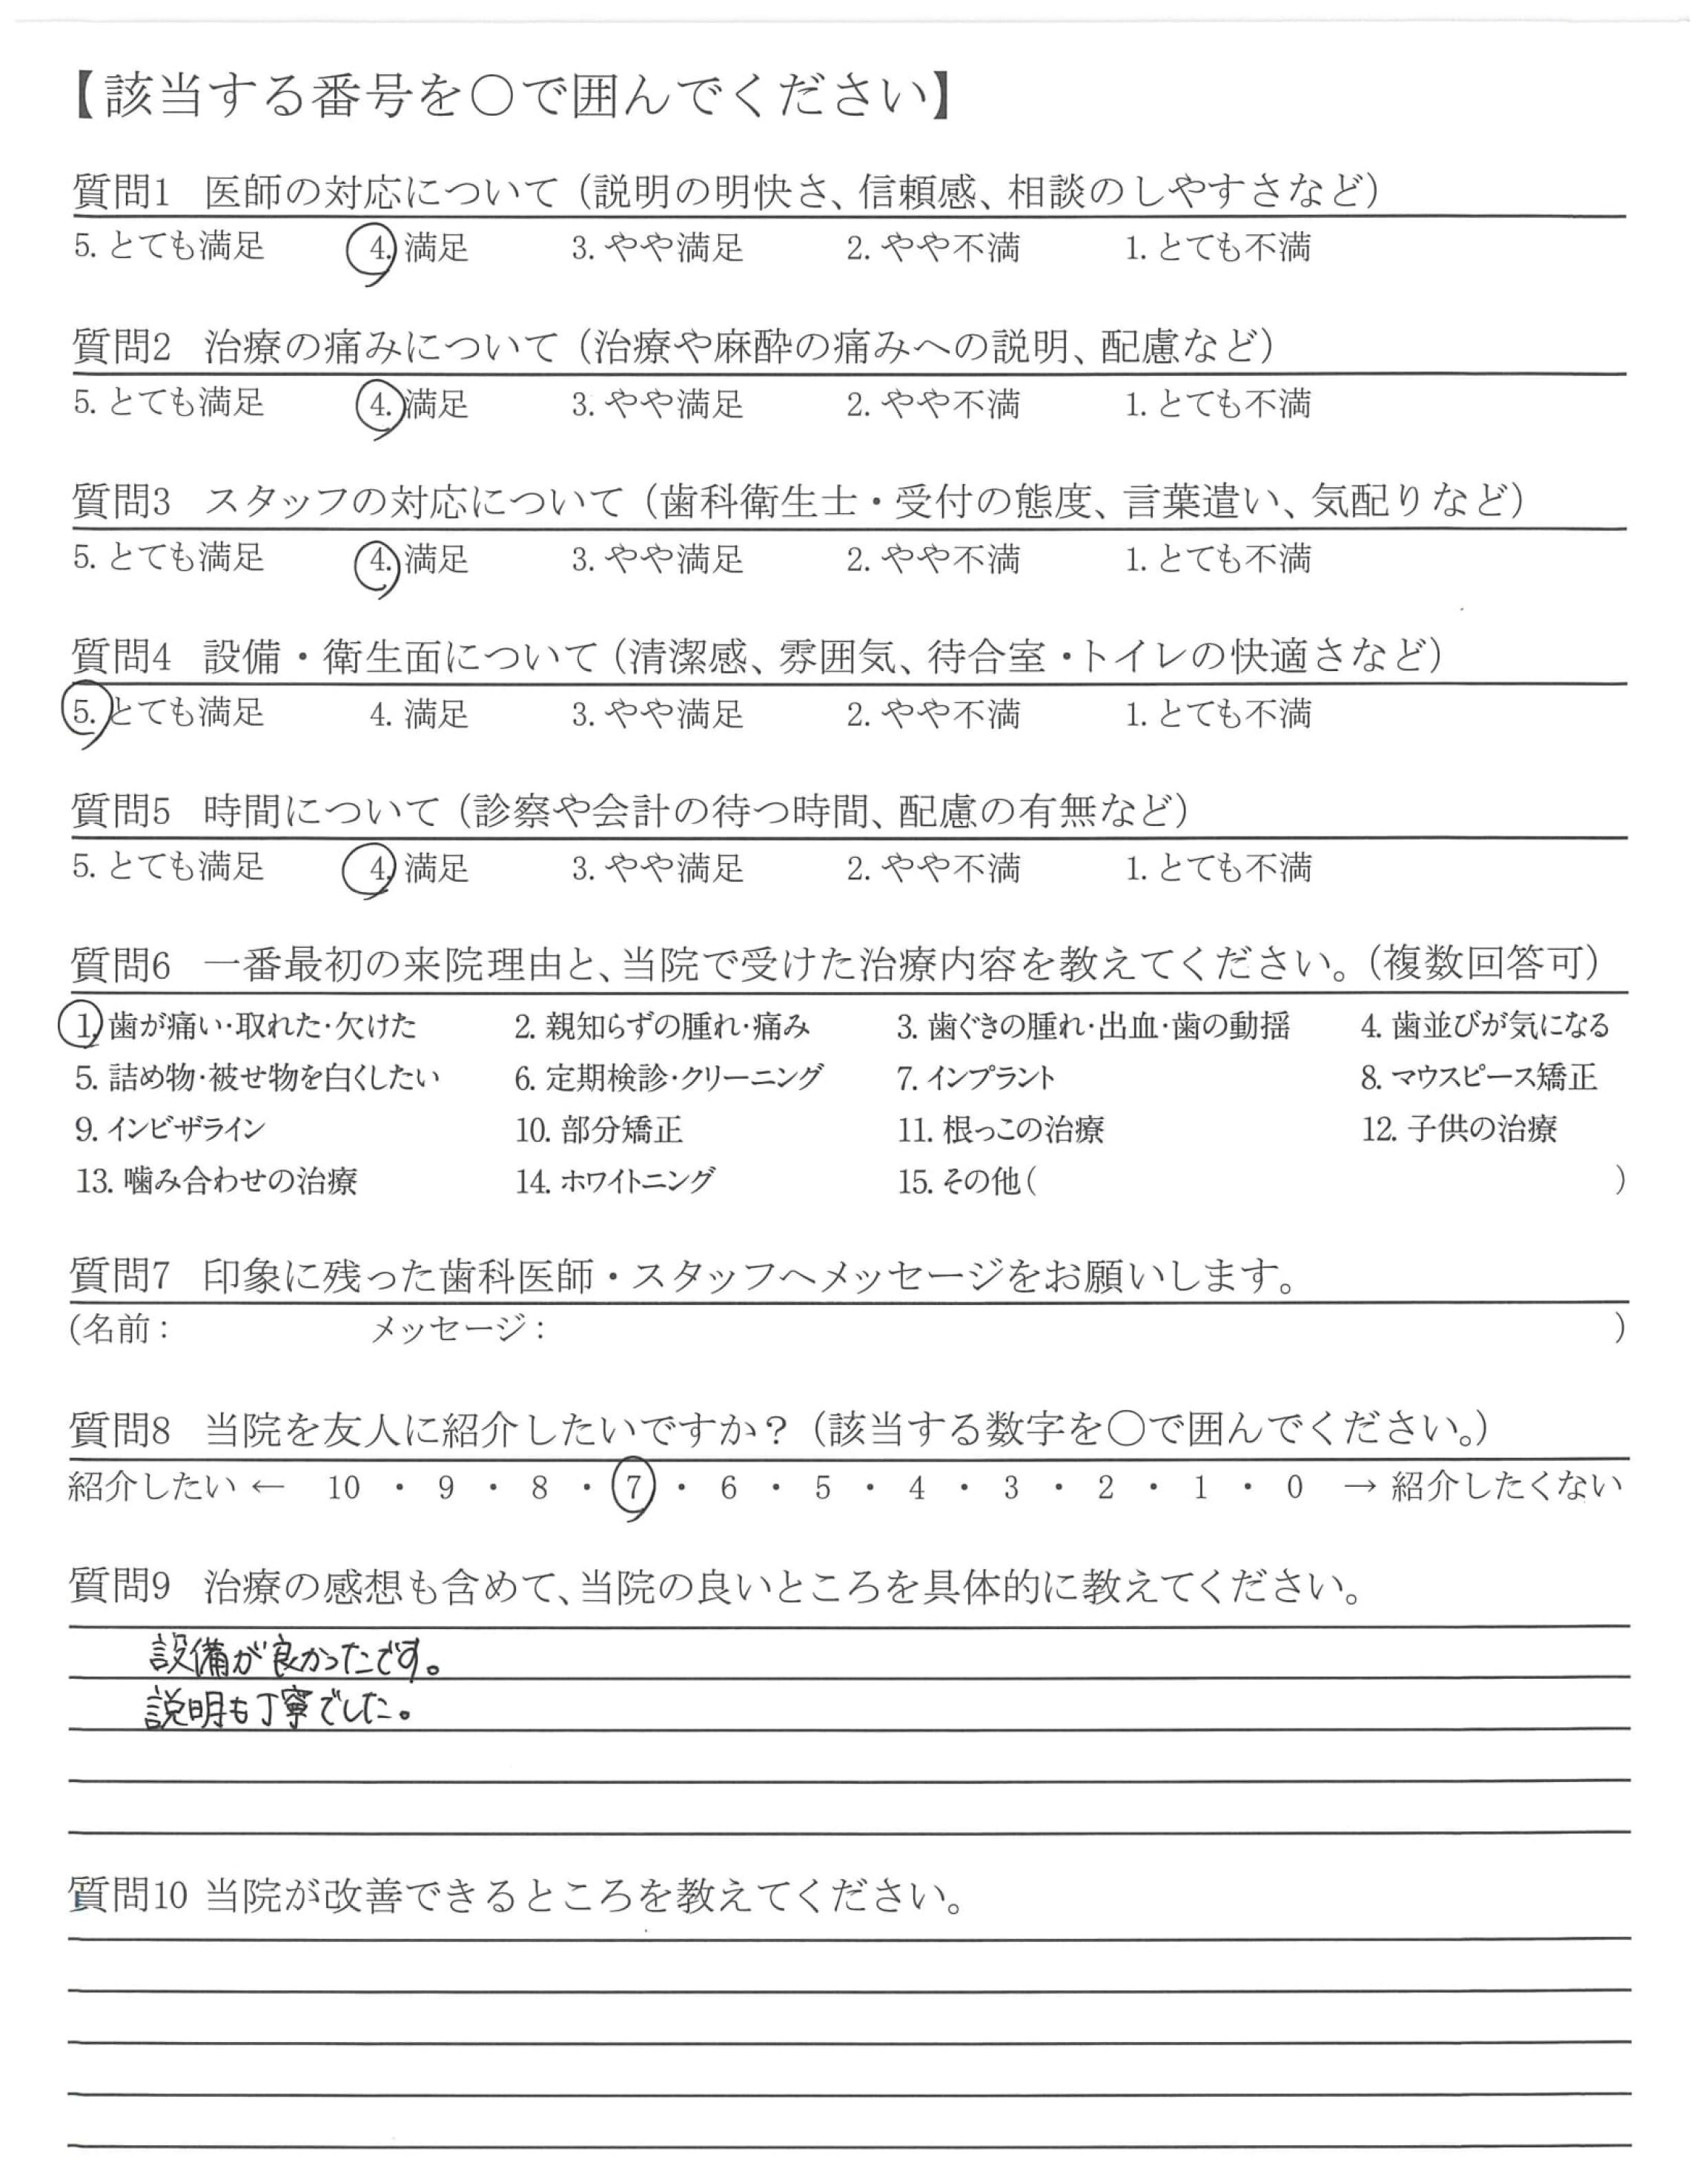 【該当する番号を〇で囲んでください】
質問1 医師の対応について（説明の明快さ、信頼感、相談のしやすさなど）
5. とても満足 4. 満足 3. やや満足 2. やや不満 1. とても不満
質問2 治療の痛みについて（治療や麻酔の痛みへの説明、配慮など）
5. とても満足 4. 満足 3. やや満足 2. やや不満 1. とても不満
質問3 スタッフの対応について（歯科衛生士・受付の態度、言葉遣い、気配りなど）
5. とても満足 4. 満足 3. やや満足 2. やや不満 1. とても不満
質問4 設備・衛生面について（清潔感、雰囲気、待合室・トイレの快適さなど）
5. とても満足 4. 満足 3. やや満足 2. やや不満 1. とても不満
質問5 時間について（診察や会計の待つ時間、配慮の有無など）
5. とても満足 4. 満足 3. やや満足 2. やや不満 1. とても不満
質問6 一番最初の来院理由と、当院で受けた治療内容を教えてください。（複数回答可）
1. 歯が痛い・取れた・欠けた 2. 親知らずの腫れ・痛み 3. 歯ぐきの腫れ・出血・歯の動揺 4. 歯並びが気になる
5. 詰め物・被せ物を白くしたい 6. 定期検診・クリーニング 7. インプラント 8. マウスピース矯正
9. インビザライン 10. 部分矯正 11. 根っこの治療 12. 子供の治療
13. 噛み合わせの治療 14. ホワイトニング 15. その他( )
質問7 印象に残った歯科医師・スタッフへメッセージをお願いします。
(名前： メッセージ： )
質問8 当院を友人に紹介したいですか？（該当する数字を〇で囲んでください。）
紹介したい ← 10 ・ 9 ・ 8 ・ 7 ・ 6 ・ 5 ・ 4 ・ 3 ・ 2 ・ 1 ・ 0 → 紹介したくない
質問9 治療の感想も含めて、当院の良いところを具体的に教えてください。
設備が良かったです。
説明も丁寧でした。
質問10 当院が改善できるところを教えてください。